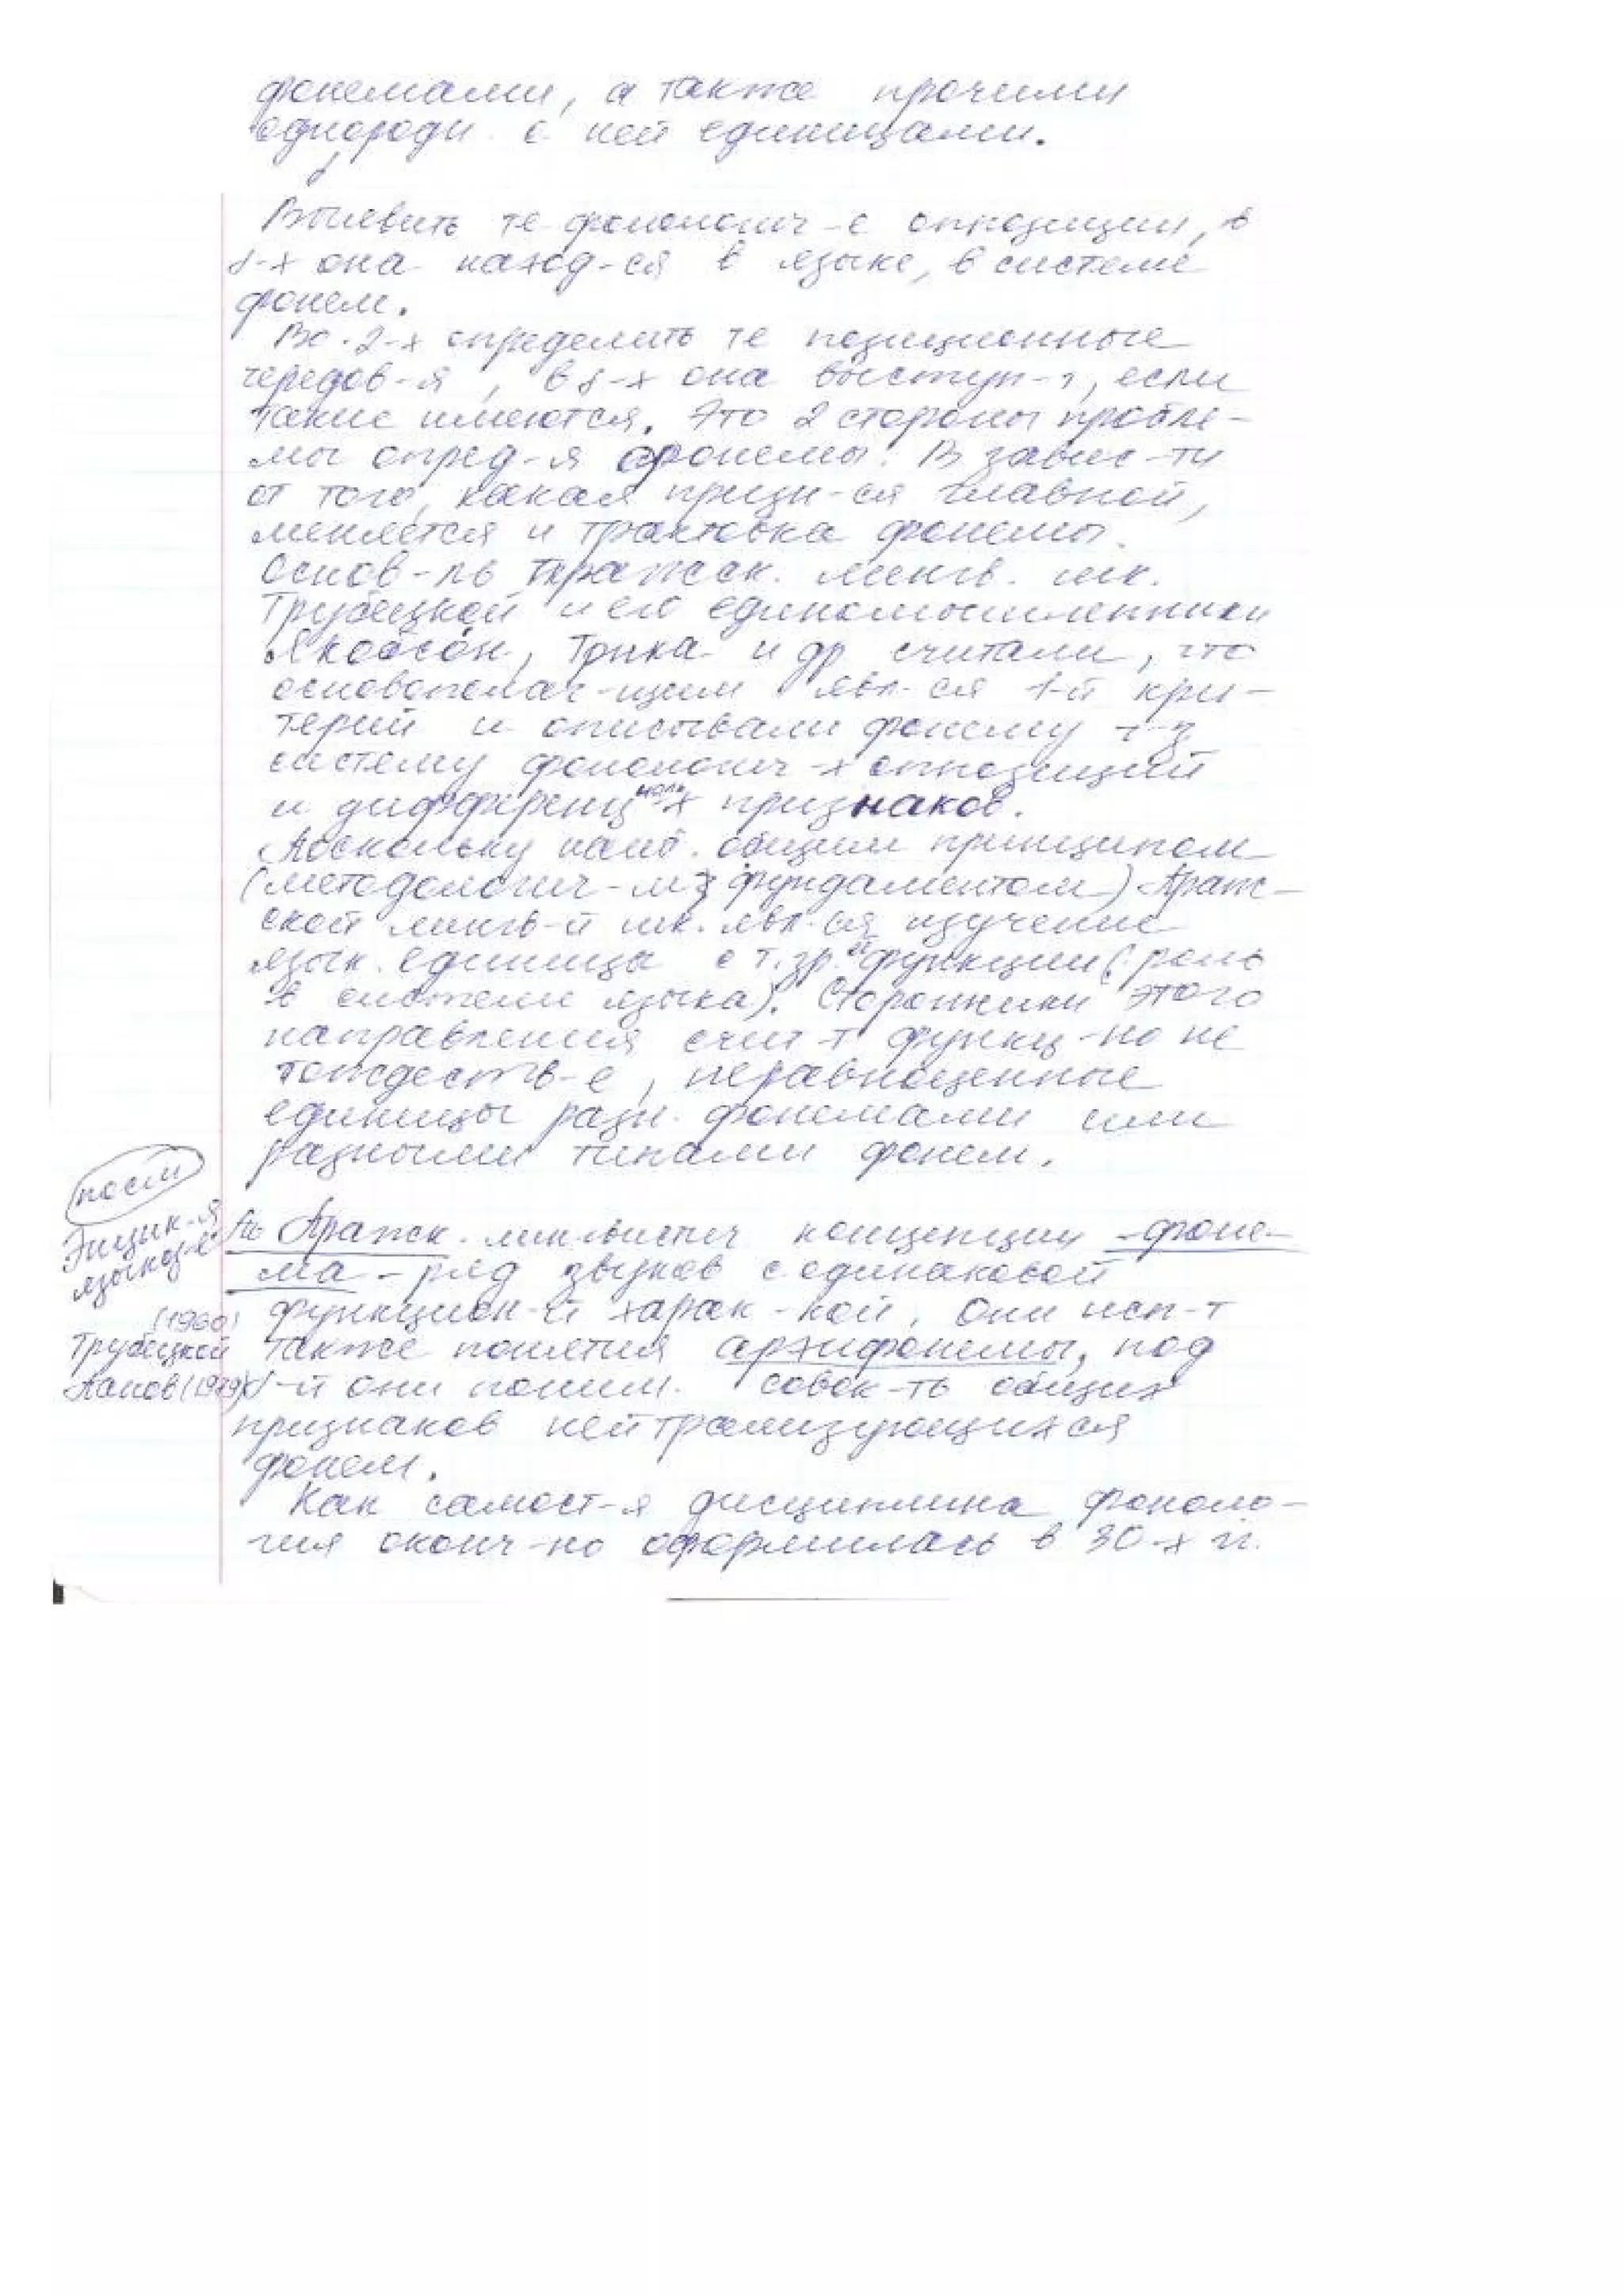 фонемами, а также прочими
однородн. с ней единицами.
Выявить те фонологич-е оппозиции, в
к-х она наход-ся в языке, в системе
фонем.
Во-2-х определить те позиционные
чередов-я, в к-х она выступ-т, если
такие имеются. Это 2 стороны пробле-
мы опред-я фонемы. В завис-ти
от того, какая призн-ся главной,
меняется и трактовка фонемы.
Основ-ль Пражск. лингв. шк.
Трубецкой и его единомышленники
Якобсон, Трнка и др считали, что
основополаг-щим явл-ся 1-й кри-
терий и описывали фонему ч-з
систему фонологич-х оппозиций
и дифференц-ных признаков.
Поскольку наиб. общим принципом
(методологич-м фундаментом) Праж-
ской лингв-й шк. явл-ся изучение
язык. единицы с т.зр. её функции (роль
в системе языка). Сторонники этого
направления счит-т функц-но не
тождеств-е, неравноценные
единицы разн. фонемами или
разными типами фонем.
посм
Энцик-я
языкоз-е
(1960)
Трубецкой
Панов (1979)
По Пражск. лингвистич концепции фоне-
ма - ряд звуков с одинаковой
функцион-й харак-кой. Они исп-т
также понятия архифонемы, под
к-й они поним. совок-ть общих
признаков нейтрализующихся
фонем.
Как самост-я дисциплина фоноло-
гия оконч-но оформилась в 30-х гг.